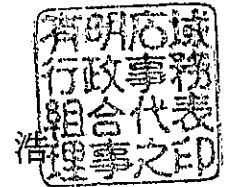 有明広域
行政事務
組合代表
理事之印
浩